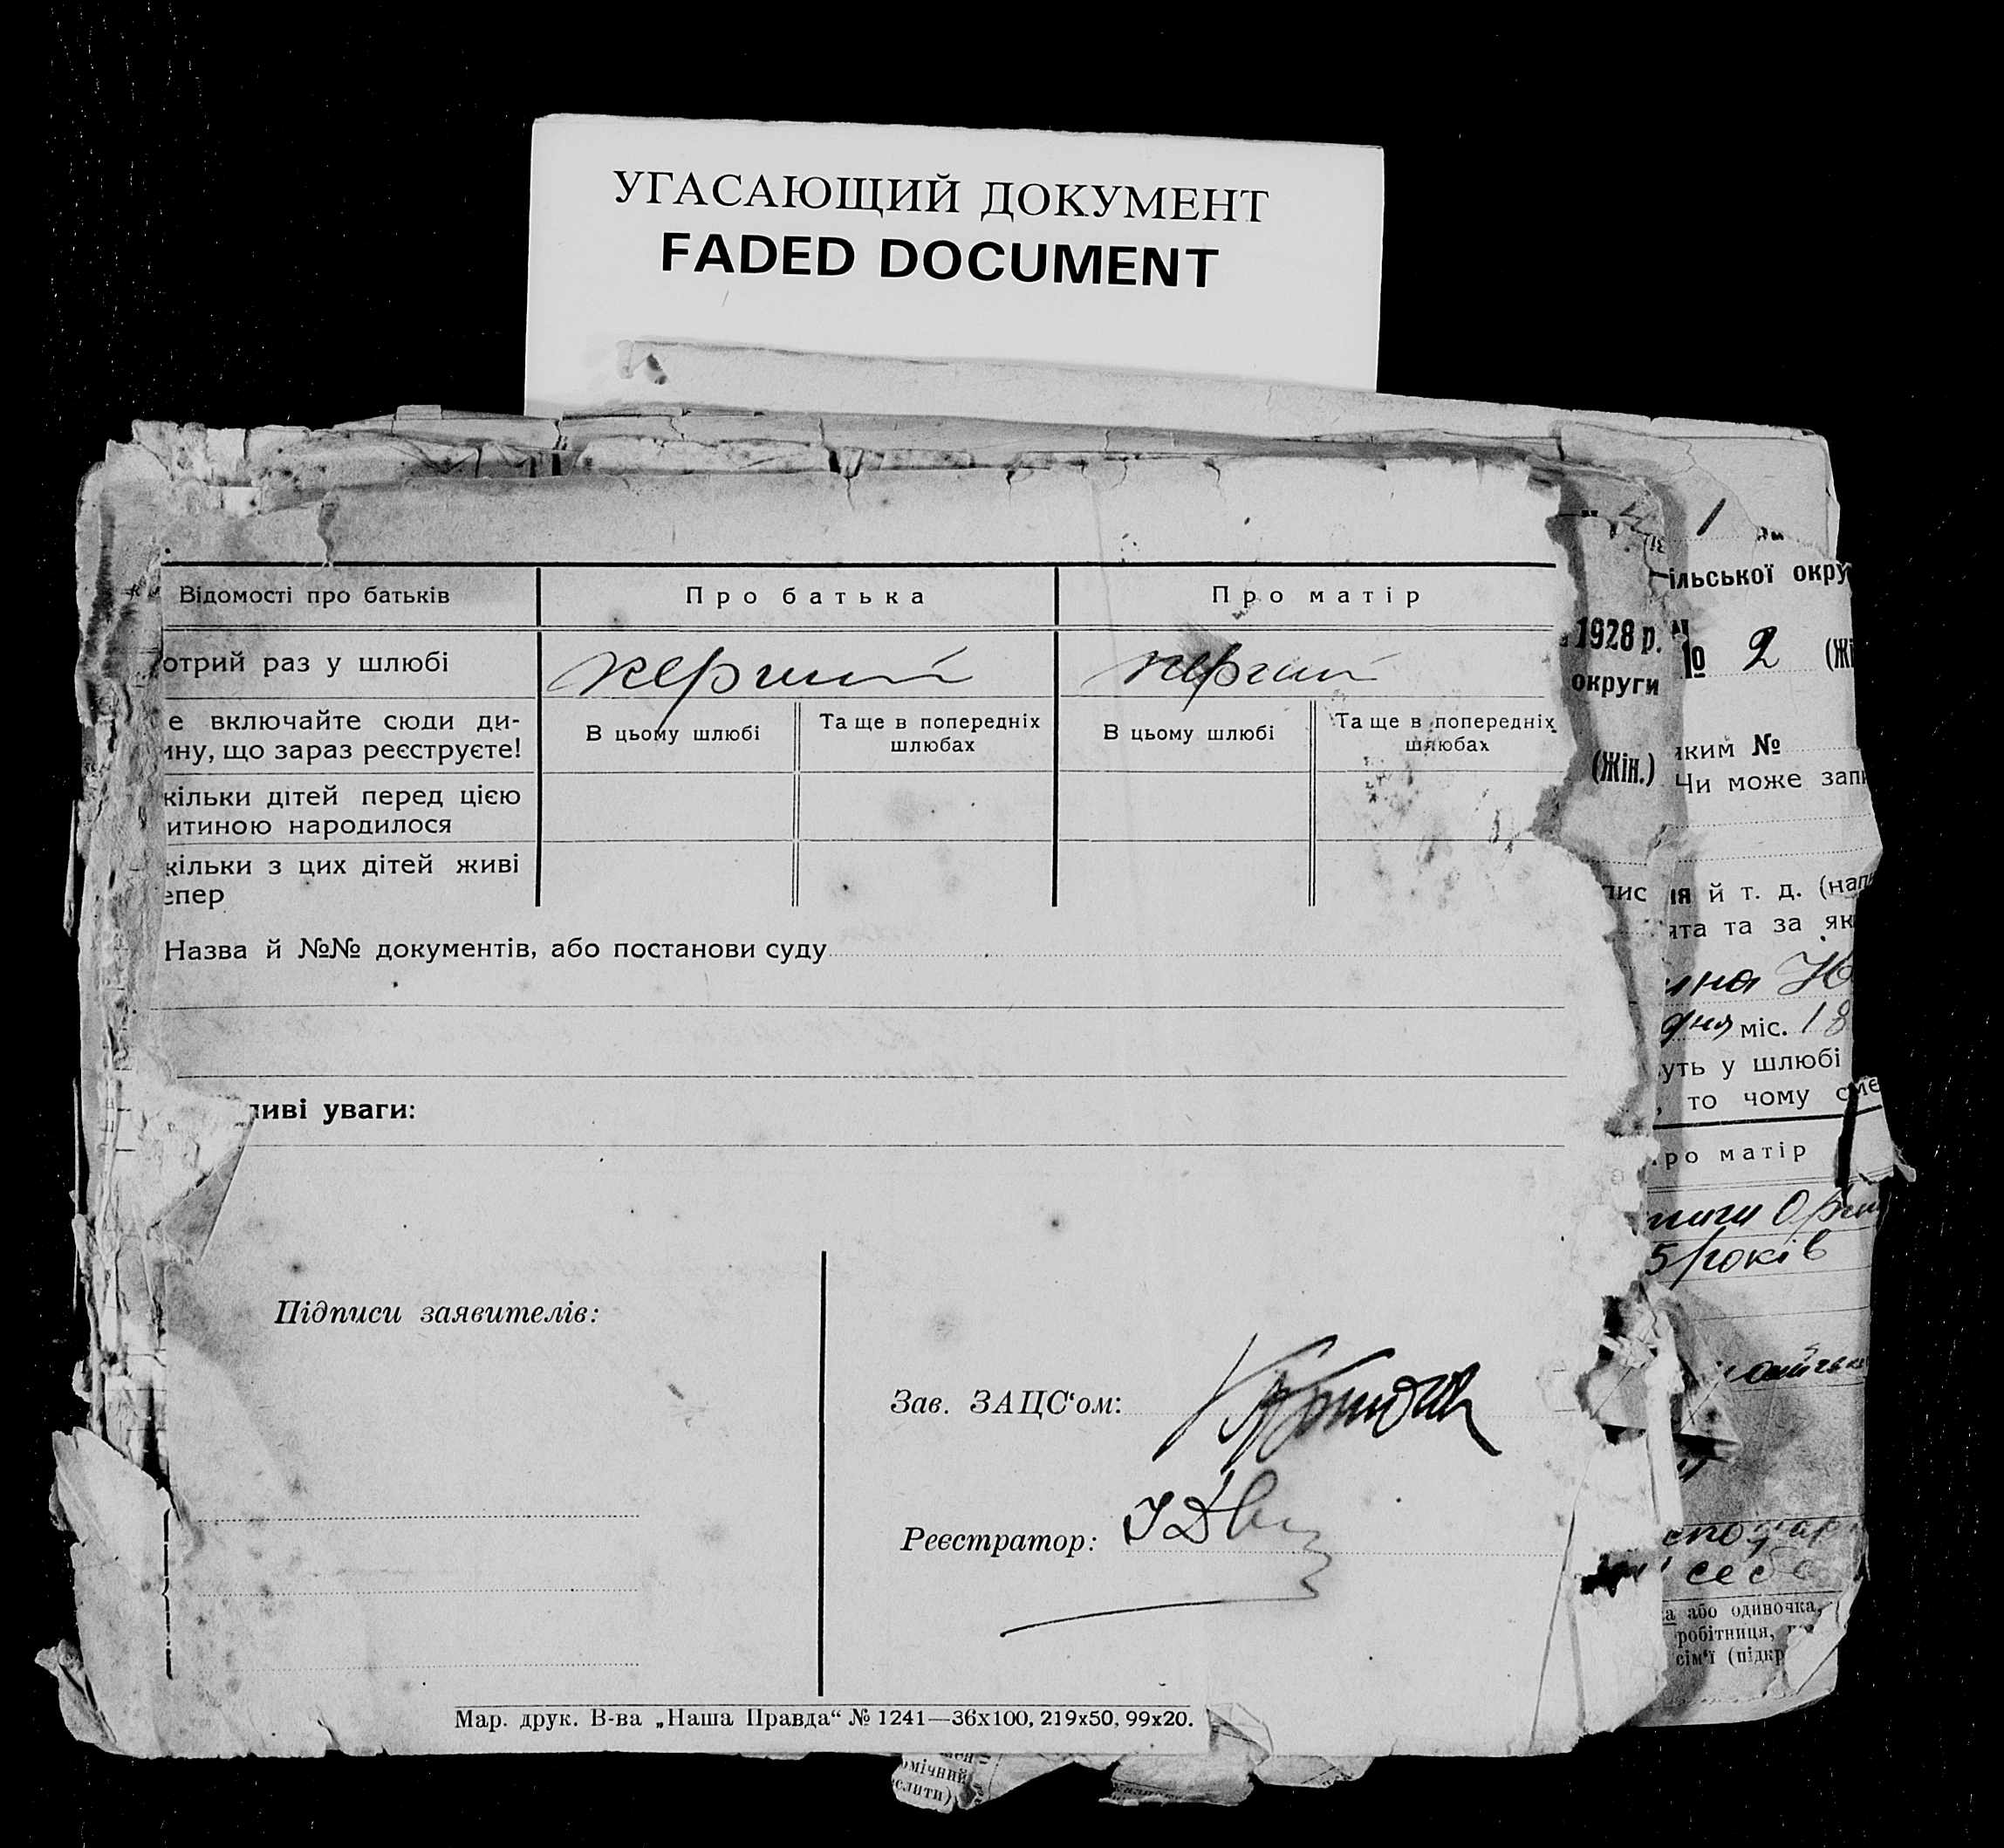 УГАСАЮЩИЙ ДОКУМЕНТ
FADED DOCUMENT
Відомості про батьків
Про батька
Про матір
отрий раз у шлюбі
перший
перший
е включайте сюди ди-
ину, що зараз реєструєте!
В цьому шлюбі
Та ще в попередніх
шлюбах
В цьому шлюбі
Та ще в попередніх
шлюбах
кільки дітей перед цією
итиною народилося
кільки з цих дітей живі
епер
Назва й №№ документів, або постанови суду
ливі уваги:
Підписи заявителів:
Зав. ЗАЦС‘ом:
Реєстратор:
Мар. друк. В-ва „Наша Правда“ № 1241—36х100, 219х50, 99х20.
1928 р.
округи
(Жін.)
пис
1
ільської окру
№ 2 (Жі
яким №
Чи може запи
ня й т. д. (напи
ята та за як
дня міс. 18
уть у шлюбі
, то чому сме
ро матір
5 років
себе
а або одиночка,
робітниця,
сім'ї (підкр
омічний
слити)